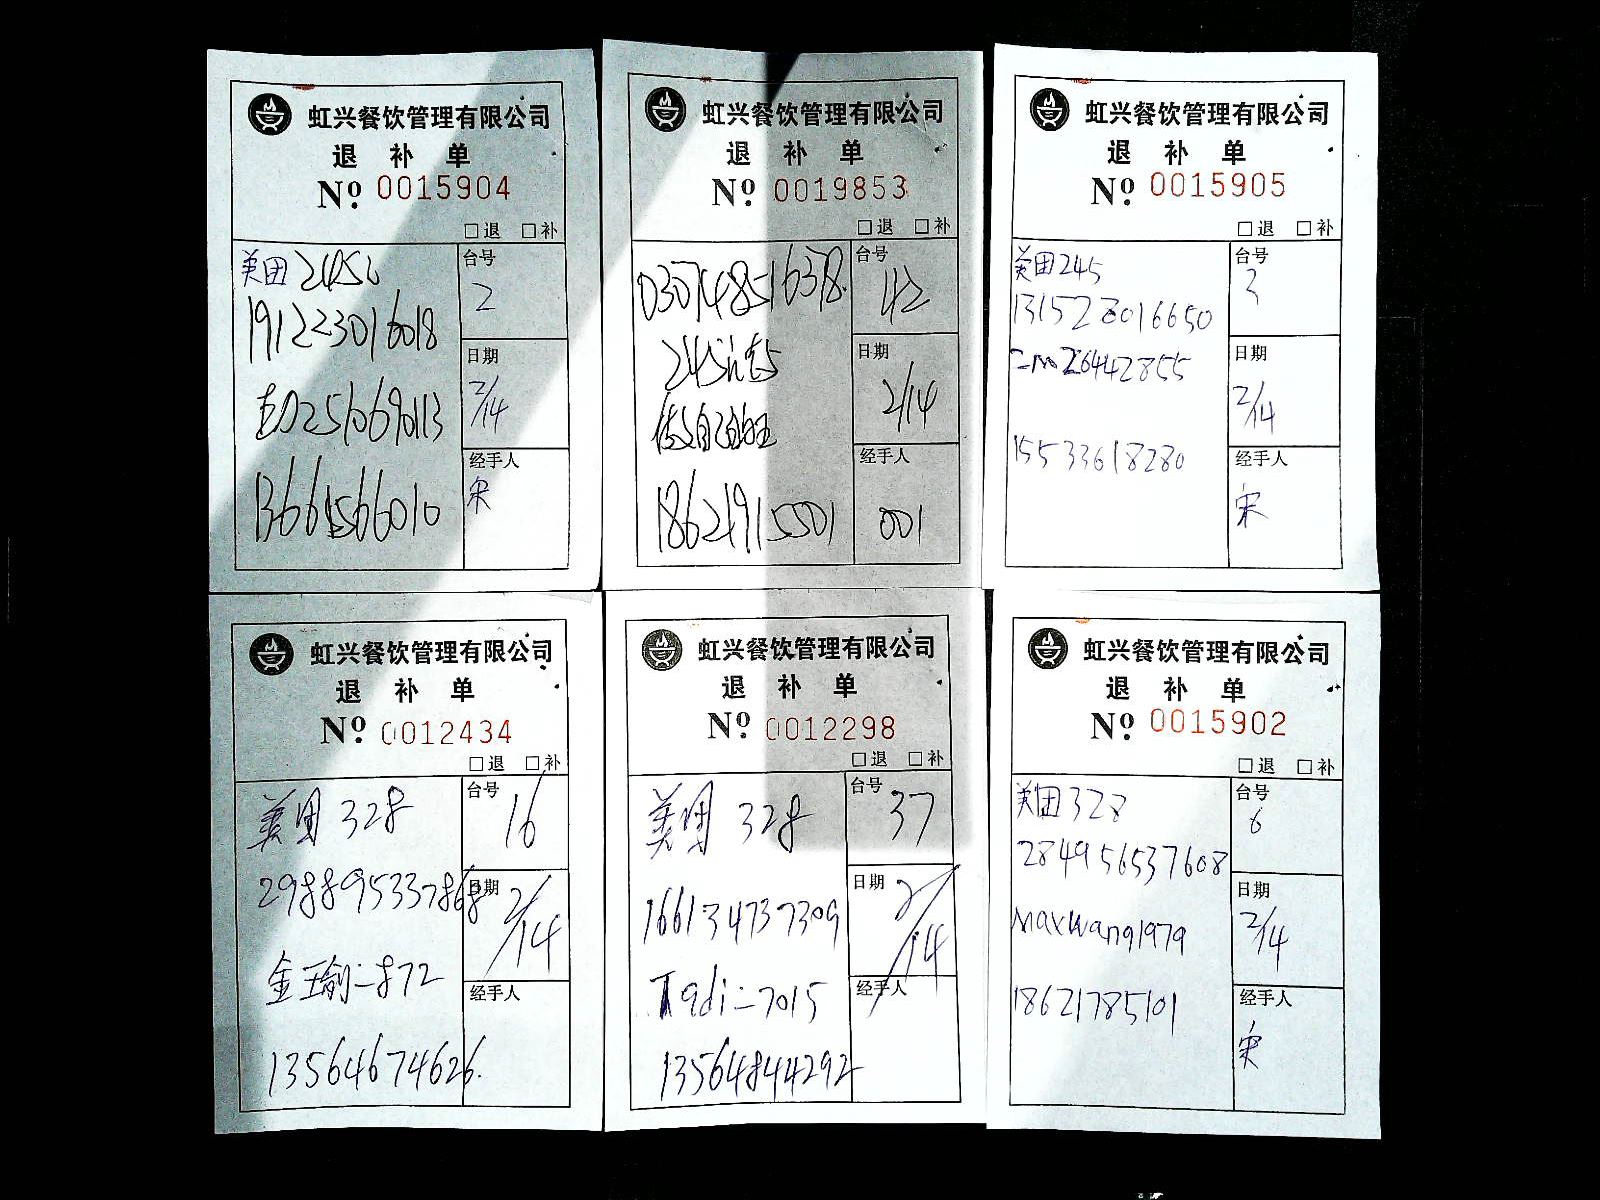 虹兴餐饮管理有限公司
退 补 单
Nº 0015904
□退 □补
美团245
191223016018
02510690113
13661566010
台号
2
日期
2/14
经手人
宋
虹兴餐饮管理有限公司
退 补 单
Nº 0019853
□退 □补
030748516378
245
18621915501
台号
42
日期
2/14
经手人
001
虹兴餐饮管理有限公司
退 补 单
Nº 0015905
□退 □补
美团245
131527016650
15533618280
台号
3
日期
2/14
经手人
宋
虹兴餐饮管理有限公司
退 补 单
Nº 0012434
□退 □补
美团 328
298895337868
金玉瑜二872
13564674626.
台号
16
日期
2/14
经手人
虹兴餐饮管理有限公司
退 补 单
Nº 0012298
□退 □补
美团 328
166134737309
Tqdi二7015
13564844292
台号
37
日期
2/14
经手人
虹兴餐饮管理有限公司
退 补 单
Nº 0015902
□退 □补
美团328
284956537608
Maxwang1979
18621785101
台号
6
日期
2/14
经手人
宋